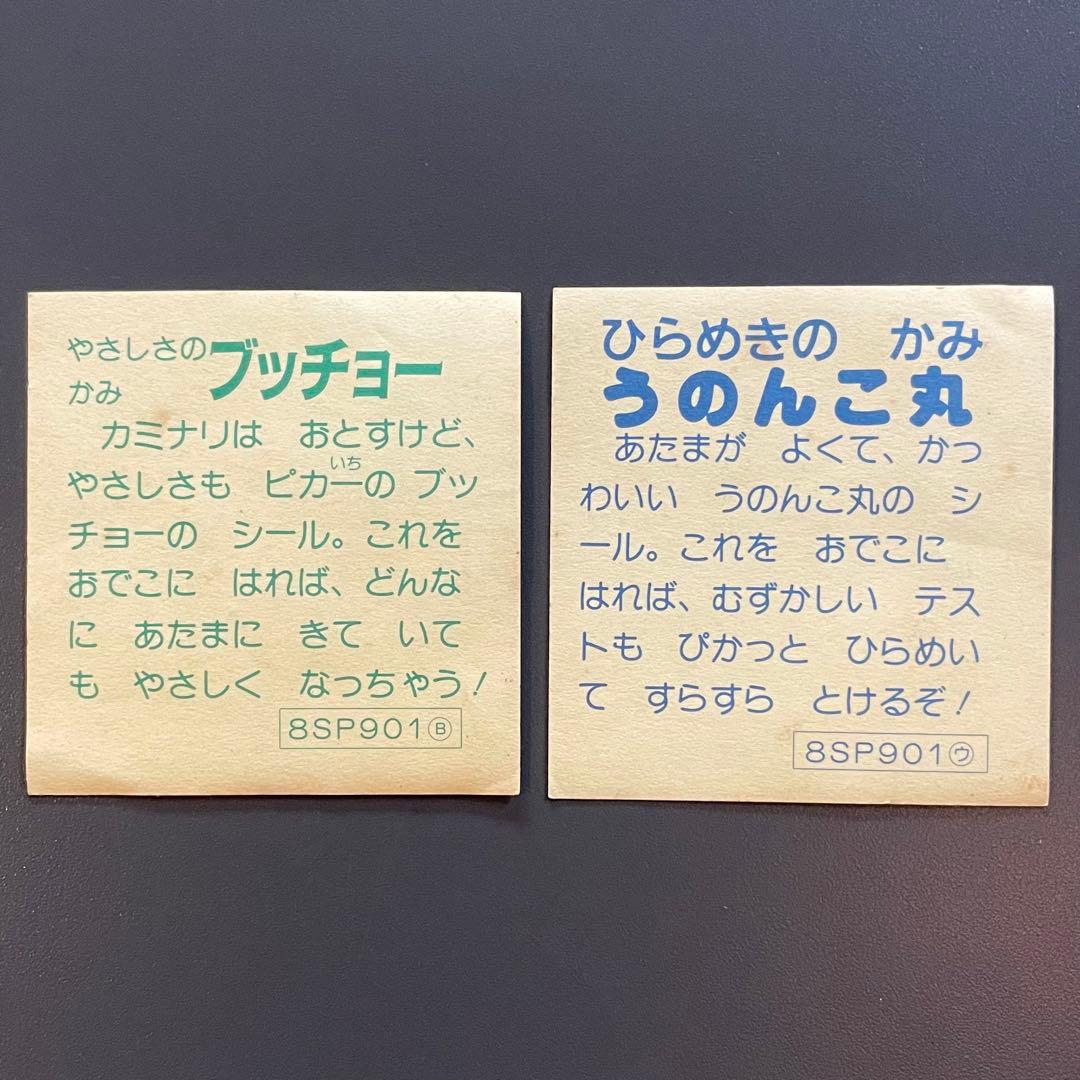 やさしさの
かみ
ブッチョー
カミナリは おとすけど、
やさしさも ピカ一の ブッ
いち
チョーの シール。これを
おでこに はれば、どんな
に あたまに きて いて
も やさしく なっちゃう!
8SP901Ⓑ
ひらめきの かみ
うのんこ丸
あたまが よくて、かっ
わいい うのんこ丸の シ
ール。これを おでこに
はれば、むずかしい テス
トも ぴかっと ひらめい
て すらすら とけるぞ!
8SP901㋒